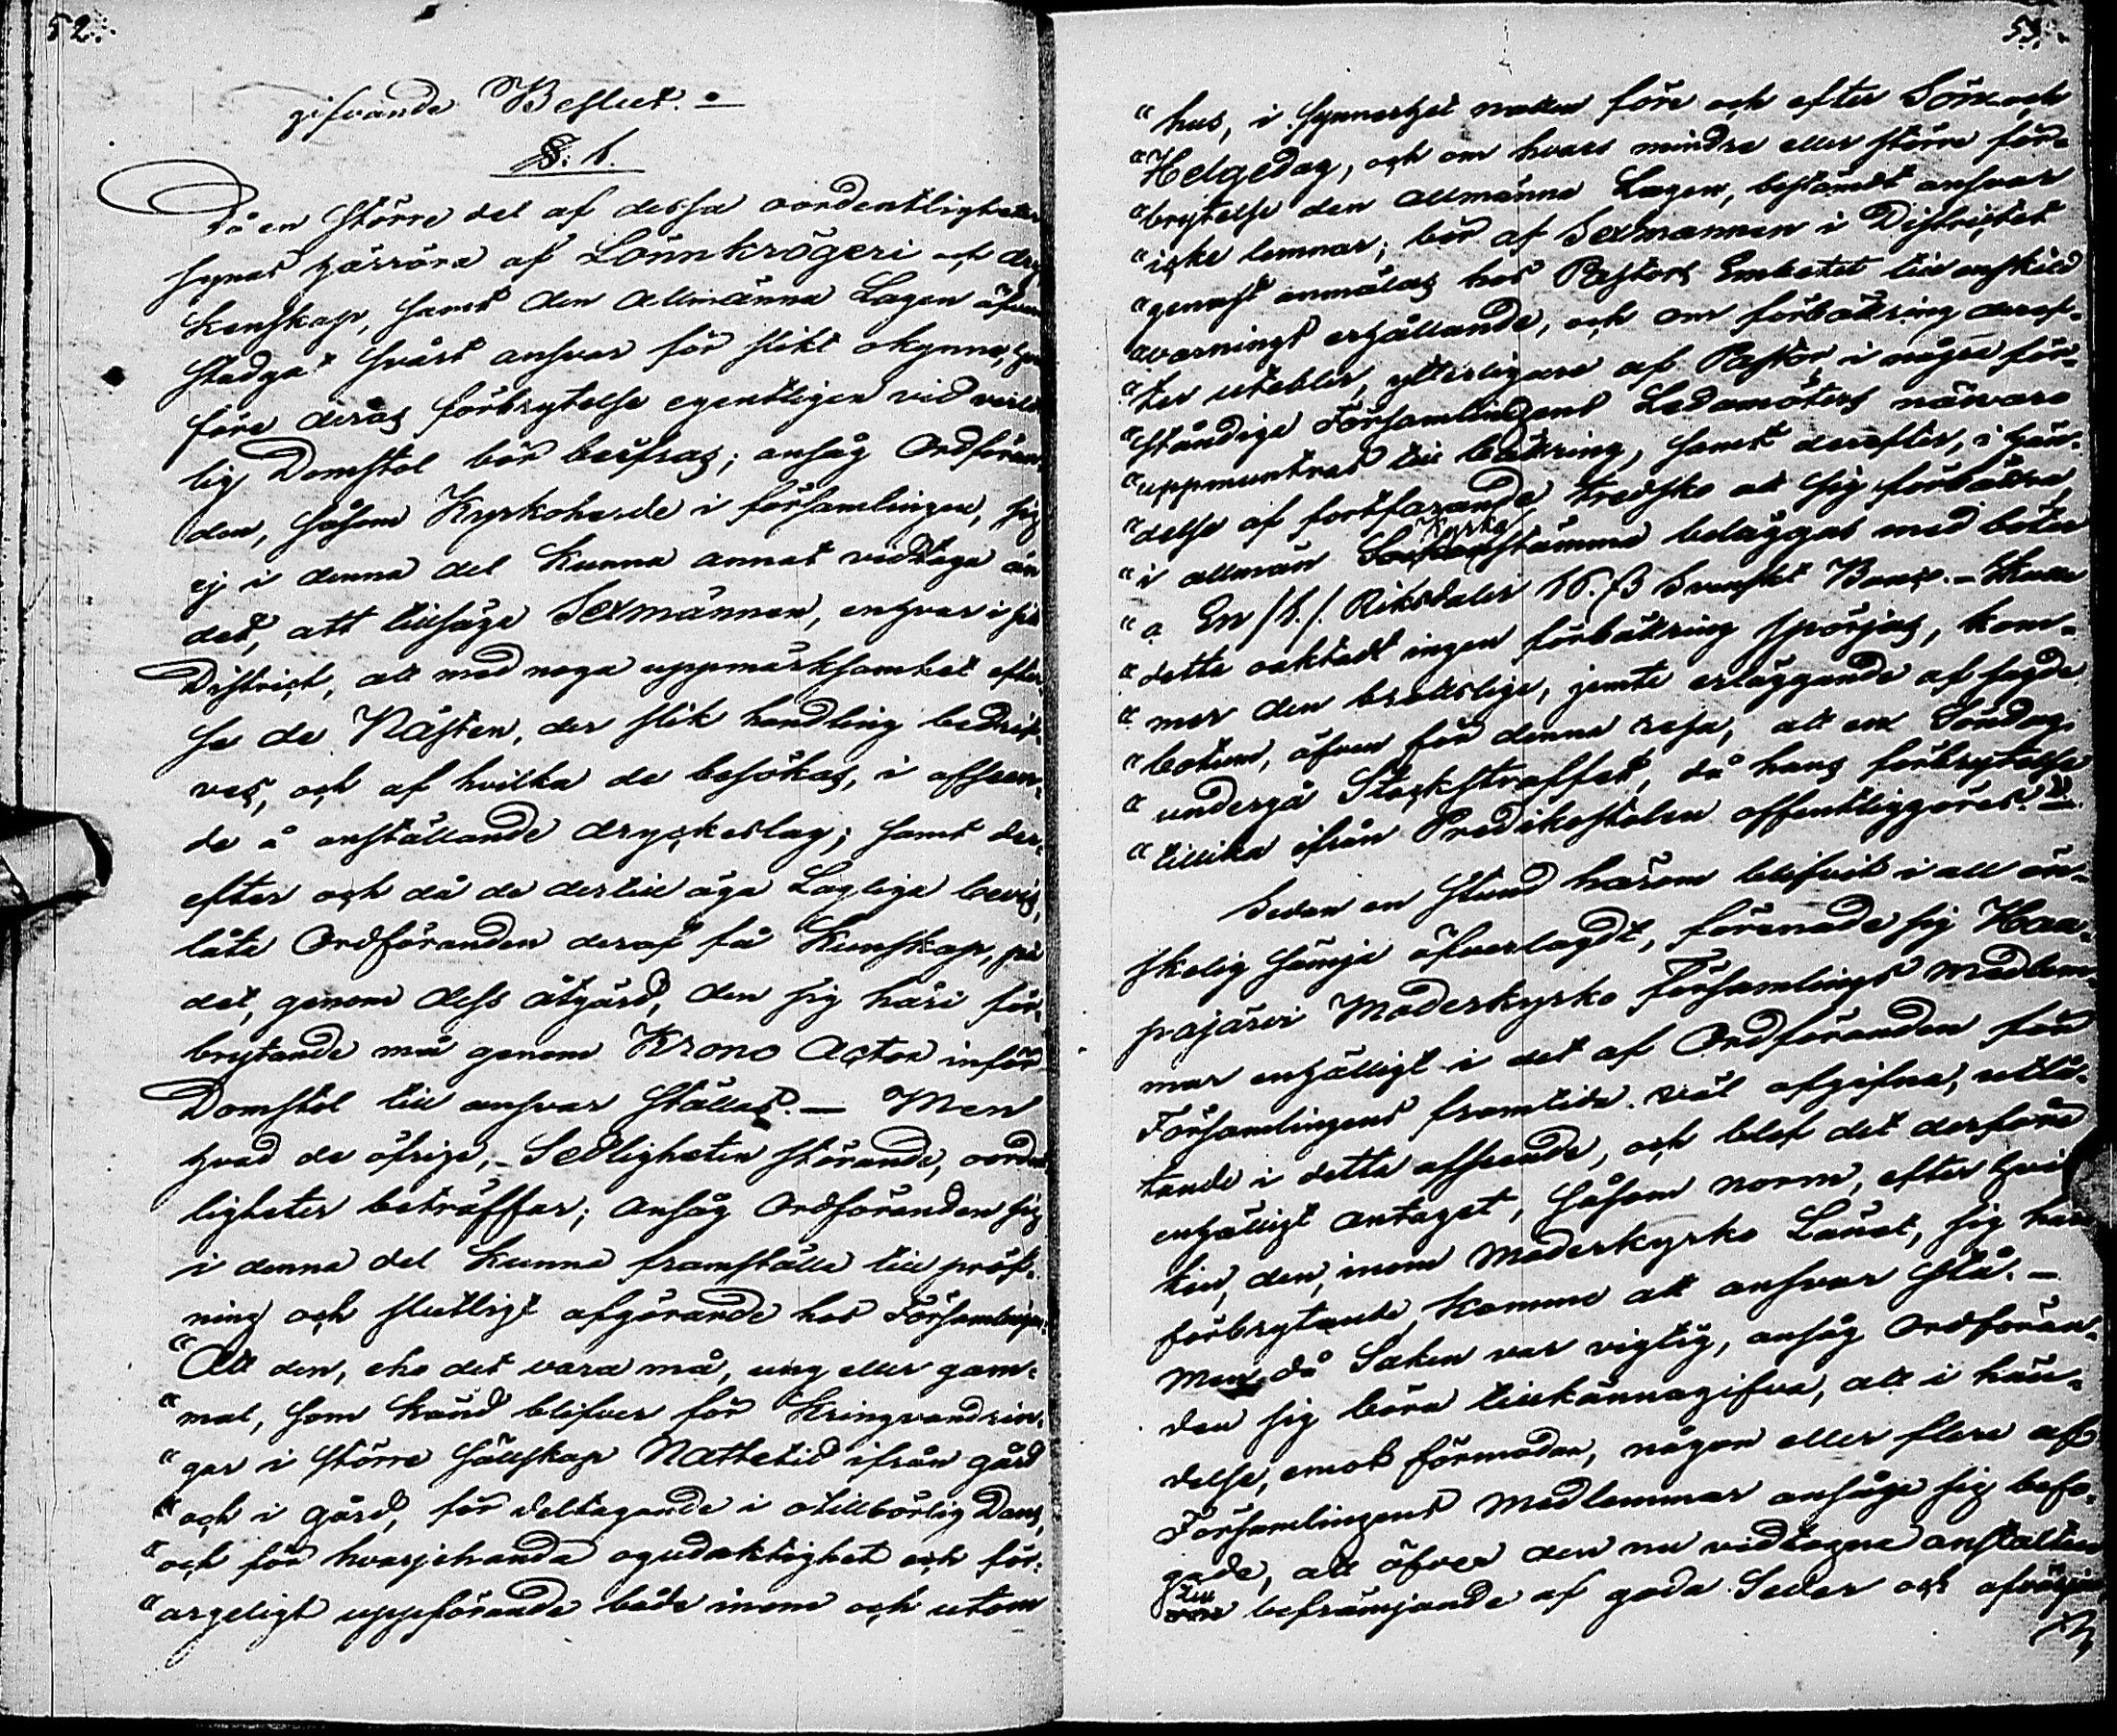 52.
gifvande Beslut. —
§: 1.
Då en större del af dessa oordentligheter
synas härröra af Lönnkrögeri och dry
kenskap, samt den Allmänna Lagen äfven
stadgat svårt ansvar för slikt okynne,
före deras förbrytelse egentligen vid verlds
lig Domstol bör beifras; ansåg Ordföran-
den, såsom Kyrkoherde i församlingen, sig
ej i denna del kunna annat vidtaga än
det, att tillsäga Sexmännen, enhvar i sitt
District, att med noga uppmärksamhet efter-
se de Nästen, der slik handling bedrif-
ves, och af hvilka de besökas, i afseen-
de å anställande dryckeslag; samt der-
efter och då de dertill äga Lagliga bevis,
låta Ordföranden deraf få Kunskap, på
det, genom dess åtgärd, den sig häri för-
brytande må genom Krono Actor inför
Domstol till ansvar ställas. — Men
hvad de öfrige, Sedligheten störande, oordent
ligheter beträffar; ansåg Ordföranden sig
i denna del kunna framställa till pröf-
ning och slutligt afgörande hos Församlingen:
"Att den, eho det vara må, ung eller gam-
"mal, som känd blifver för Kringvandrin-
"gar i större sällskap Nattetid ifrån gård
"och i gård, för deltagande i otillbörlig Dans,
"och för hvarjehanda ogudaktighet och för-
"argeligt uppförande både inom och utom
53.
"hus, i synnerhet natten före och efter Sön och
"Helgedag, och om hvars mindre eller större för-
"brytelse den allmänna Lagen, bestämdt ansvar
"icke lemnar; bör af Sexmannen i Districtet
"genast anmälas hos Pastors Embetet till enskild
"varnings erhållande, och om förbättring deref-
"ter utebler, ytterligare af Pastor i några för-
"ståndige Församlingens Ledamöters närvaro
"uppmuntras till bättring, samt derefter, i hän-
"delse af fortfarande tredsko att sig förbättra,
"i allmän Kyrkostämma beläggas med böter
"a En /1./ Riksdaler 16. ß Svenskt Banco. — Skulle
"detta oaktadt ingen förbättring spörjas, kom-
"mer den brottslige, jemte erläggande af sagde
"böter, äfven för denna resa, att en Söndag
"undergå Stockstraffet, då hans förbrytelse
"tillika ifrån Predikostolen offentliggöres." —
Sedan en stund härom blifvit i all ön-
skelig sämja öfverlagdt, förenade sig Haa-
pajärvi Moderkyrko Församlings medlem-
mar enhälligt i det af Ordföranden för
Församlingens framtida väl afgifna, utlå-
tande i detta afseende, och blef det derföre
enhälligt antaget, såsom norm, efter hvil
ken, den, inom Moderkyrko Länet, sig häri
förbrytande, komme att ansvar stå. —
Men då Saken var vigtig, ansåg Ordföran-
den sig böra tillkännagifva, att i hän-
delse, emot förmodan, någon eller flere af
Församlingens Medlemmar ansåge sig befo-
gade, att öfver den nu vidtagna anstalten
till befrämjande af goda Seder och afvärjan